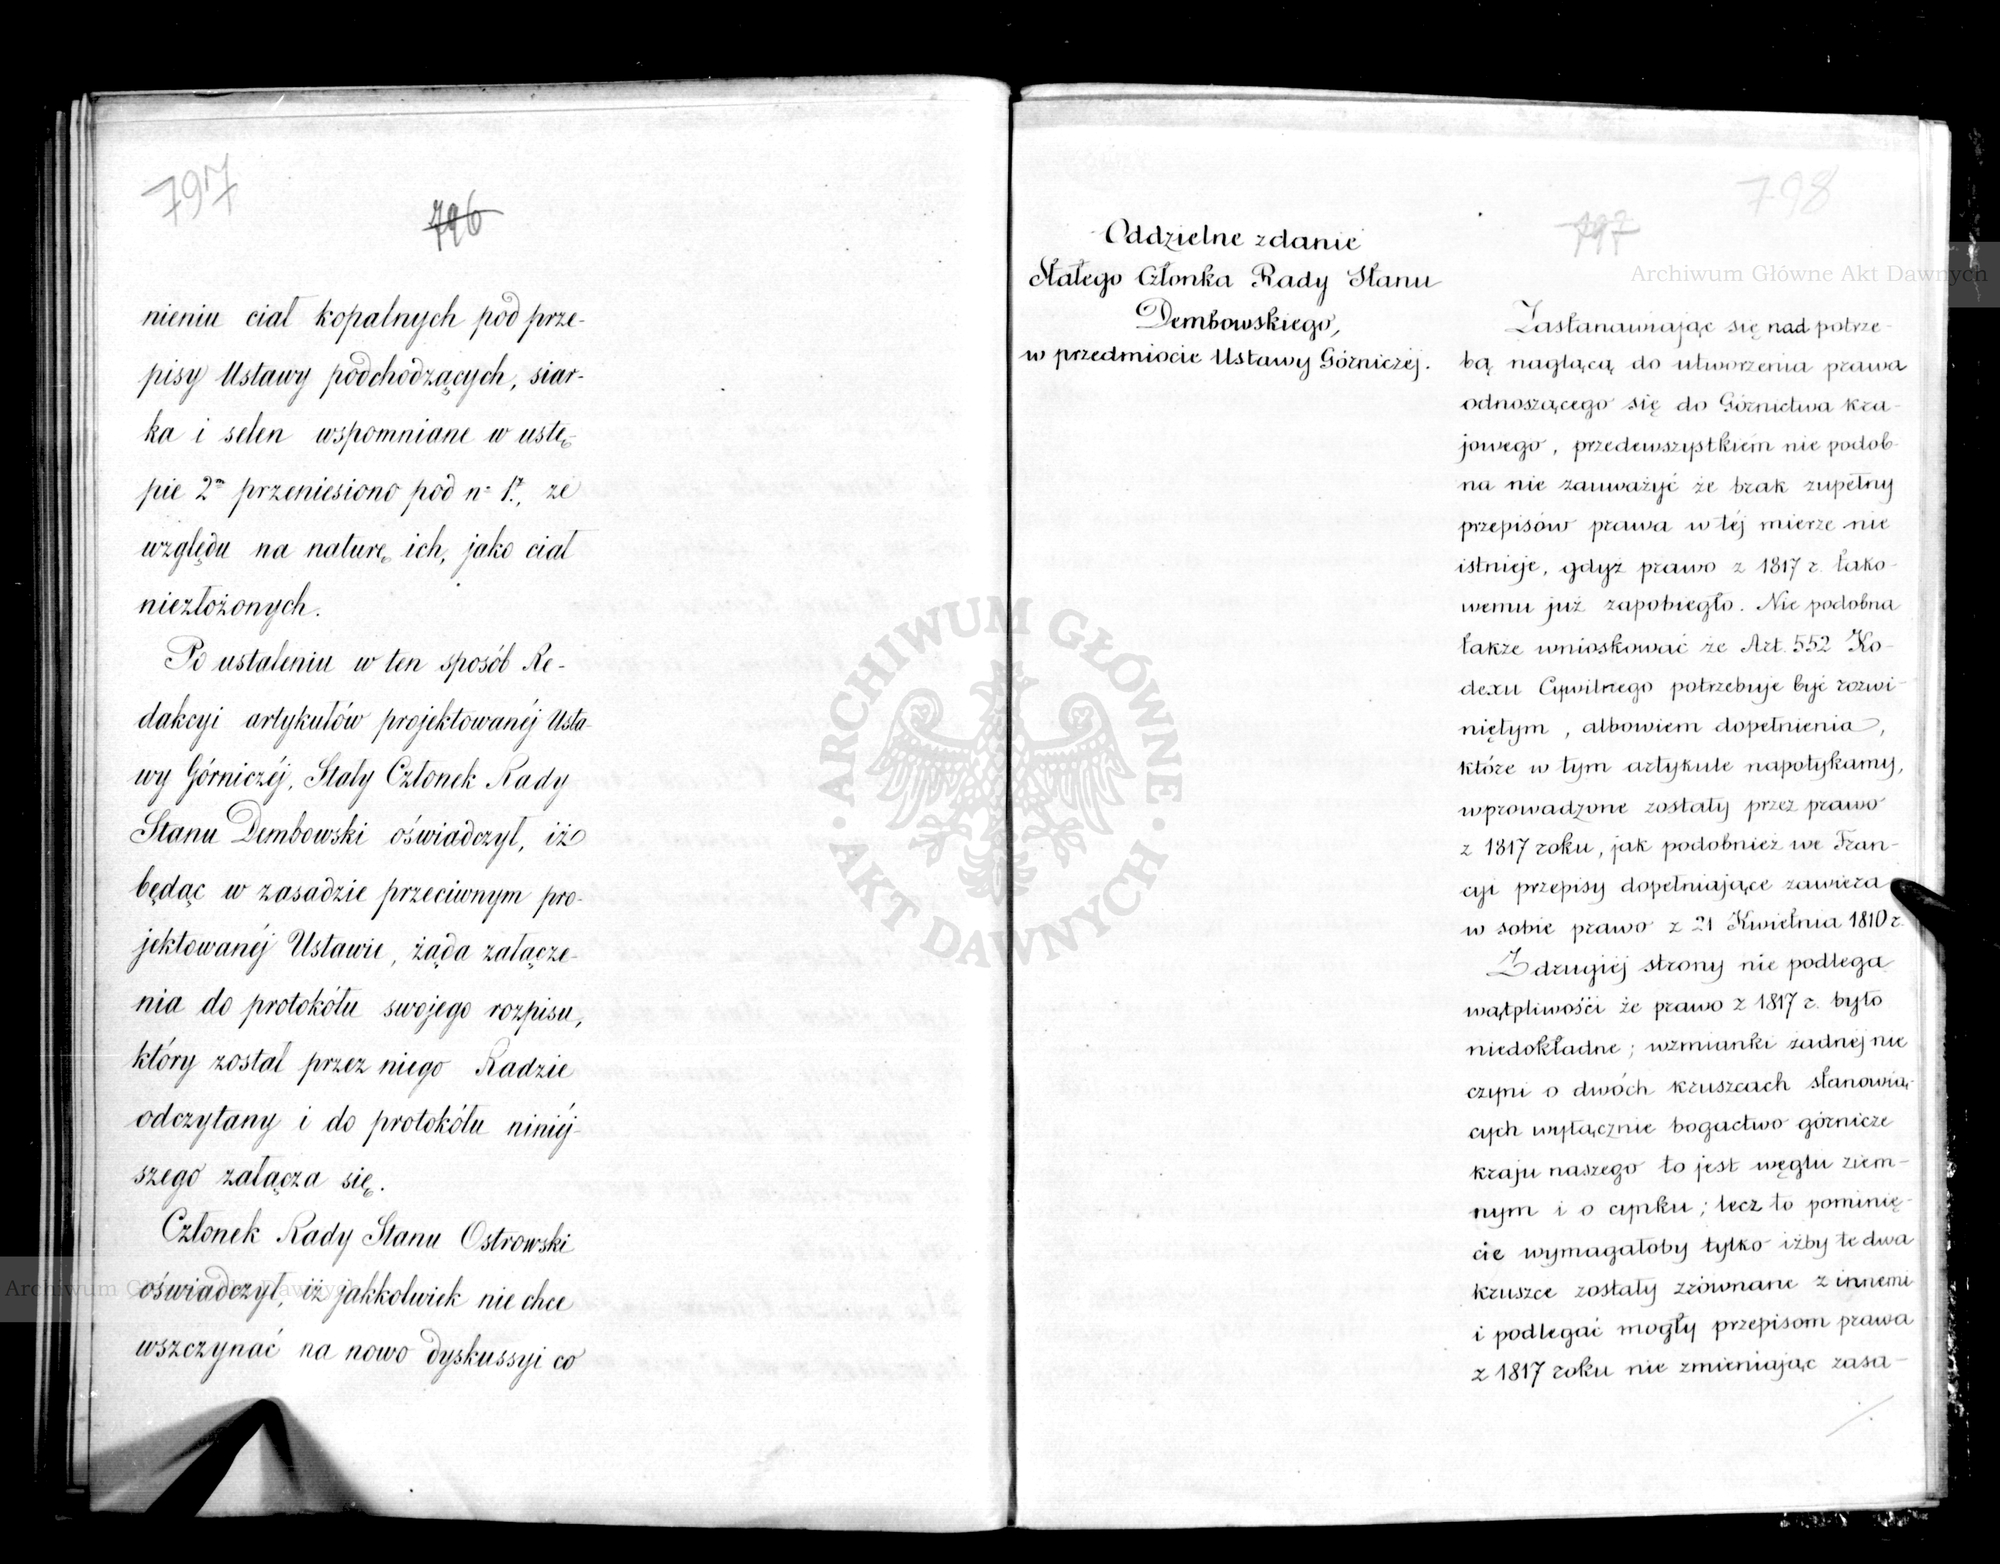 797
796
nieniu ciał kopalnych pod prze-
pisy Ustawy podchodzących, siar-
ka i selen wspomniane w ustę-
pie 2m przeniesiono pod nr 1r, ze
względu na naturę ich, jako ciał
niezłożonych.
Po ustaleniu w ten sposób Re-
dakcyi artykułów projektowanéj Usta-
wy Górniczéj, Stały Członek Rady
Stanu Dembowski oświadczył, iż
będąc w zasadzie przeciwnym pro-
jektowanéj Ustawie, żąda załącze-
nia do protokółu swojego rozpisu,
który został przez niego Radzie
odczytany i do protokółu niniéj-
szego załącza się.
Członek Rady Stanu Ostrowski
oświadczył, iż jakkolwiek nie chce
wszczynać na nowo dyskussyi co
798
797
Oddzielne zdanie
Stałego Członka Rady Stanu
Dembowskiego,
w przedmiocie Ustawy Górniczéj.
Zastanawiając się nad potrze-
bą naglącą do utworzenia prawa
odnoszącego się do Górnictwa kra-
jowego, przedewszystkiém nie podob-
na nie zauważyć że brak zupełny
przepisów prawa w téj mierze nie
istnieje, gdyż prawo z 1817 r. tako-
wemu już zapobiegło. Nie podobna
także wnioskować że Art. 552 Ko-
dexu Cywilnego potrzebuje być rozwi-
niętym, albowiem dopełnienia,
które w tym artykule napotykamy,
wprowadzone zostały przez prawo
z 1817 roku, jak podobnież we Fran-
cyi przepisy dopełniające zawiera
w sobie prawo z 21 Kwietnia 1810 r.
Z drugiéj strony nie podlega
wątpliwości że prawo z 1817 r. było
niedokładne; wzmianki żadnéj nie
czyni o dwóch kruszcach stanowią-
cych wyłącznie bogactwo górnicze
kraju naszego to jest węglu ziem-
nym i o cynku; lecz to pominię-
cie wymagałoby tylko iżby te dwa
kruszce zostały zrównane z innemi
i podlegać mogły przepisom prawa
z 1817 roku nie zmieniając zasa-
Archiwum Główne Akt Dawnych
Archiwum Główne Akt Dawnych
ARCHIWUM GŁÓWNE
AKT DAWNYCH